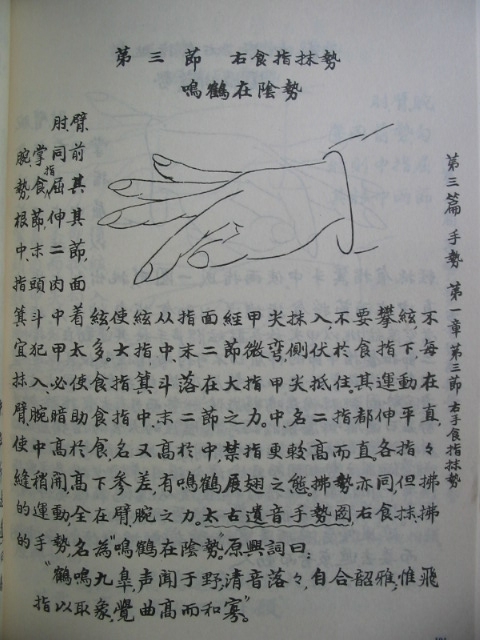 第三節 右食指抹勢
鳴鶴在陰勢
肘.臂.
腕.掌同前
勢.食指屈其
根節,伸其
中.末二節,
指頭肉面
箕斗中着絃,使絃从指面經甲尖抹入,不要攀絃,不
宜犯甲太多.大指中.末二節微彎,側伏於食指下,每
抹入,必使食指箕斗落在大指甲尖抵住.其運動在
臂腕暗助食指中.末二節之力.中名二指都伸平直,
使中高於食,名又高於中,禁指更較高而直.各指々
縫稍開,高下参差,有鳴鶴展翅之態.拂勢亦同,但拂
的運動全在臂腕之力.太古遺音手勢圖,右食抹.拂
的手勢,名為"鳴鶴在陰勢".原興詞曰:
"鶴鳴九皋,声聞于野;清音落々,自合韶雅,惟飛
指以取象,覺曲高而和寡"。
第三篇 手勢 第一章 第三節右手食指抹勢